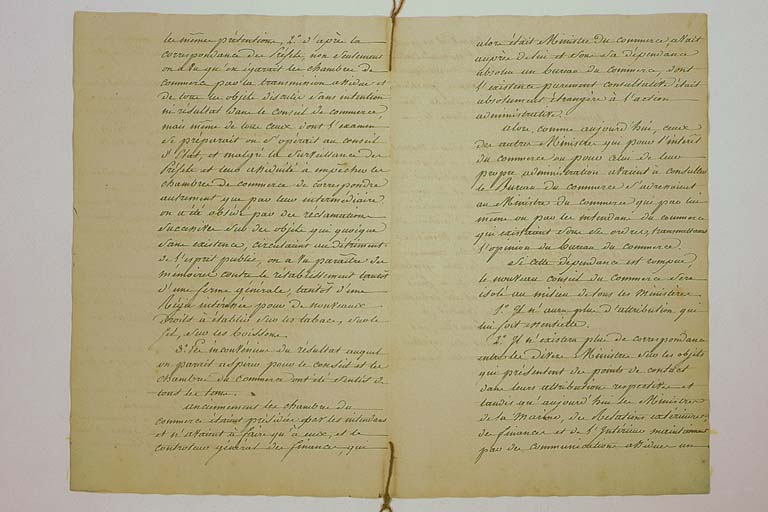 les même prétentions, 2.° d'après la
correspondance des Préfets, non seulement
on a vu qu'on égarait les chambres de
commerce par la transmission assidue et
de tous les objets discutés sans intention
ni résultat dans le conseil de commerce
mais même de tous ceux dont l'examen
se préparait ou s'opérait au conseil
d'Etat, et malgré la surveillance des
Préfets et leur assiduité à empêcher les
chambres de commerce de correspondre
autrement que par leur intermédiaire
on a été obsédé par des réclamations
successives sur des objets qui quoique
sans existence, circulaient au détriment
de l'esprit public, on a vu paraître des
mémoires contre le rétablissement tantôt
d'une ferme générale, tantôt d'une
Régie intéressée pour de nouveaux
droits à établir sur les tabacs, sur le
sel, sur les boissons.
3.° Les inconvéniens du résultat auquel
on paraît aspirer pour le conseil et les
chambres du commerce dont été sentis de
tous les tems.
anciennement les chambres du
commerce étaient présidées par les intendans
et n'avaient à faire qu'à eux, et le
controleur général des finances, qui
alors était Ministre du commerce, avait
auprès de lui et sous sa dépendance
absolue un bureau du commerce, dont
l'existence purement consultative était
absolument étrangère à l'action
administrative.
alors, comme aujourd'hui, ceux
des autres Ministres qui pour l'intérêt
du commerce ou pour celui de leur
propre administration avaient à consulter
le Bureau du commerce s'adressaient
au Ministre du commerce qui par lui
même ou par les intendans du commerce
qui existaient sous ses ordres, transmettait
l'opinion du bureau du commerce.
Si cette dépendance est rompue,
le nouveau conseil du commerce sera
isolé au milieu de tous les Ministères
1.° Il n'aura plus d'attribution qui
lui soit essentielle.
2.° Il n'existera plus de correspondance
entre les divers Ministres sur les objets
qui présentent des points de contact
dans leurs attributions respectives et
tandis qu'aujourd'hui les Ministres
de la Marine, des Relations extérieures
des finances et de l'Intérieur maintiennent
par des communications assidues un